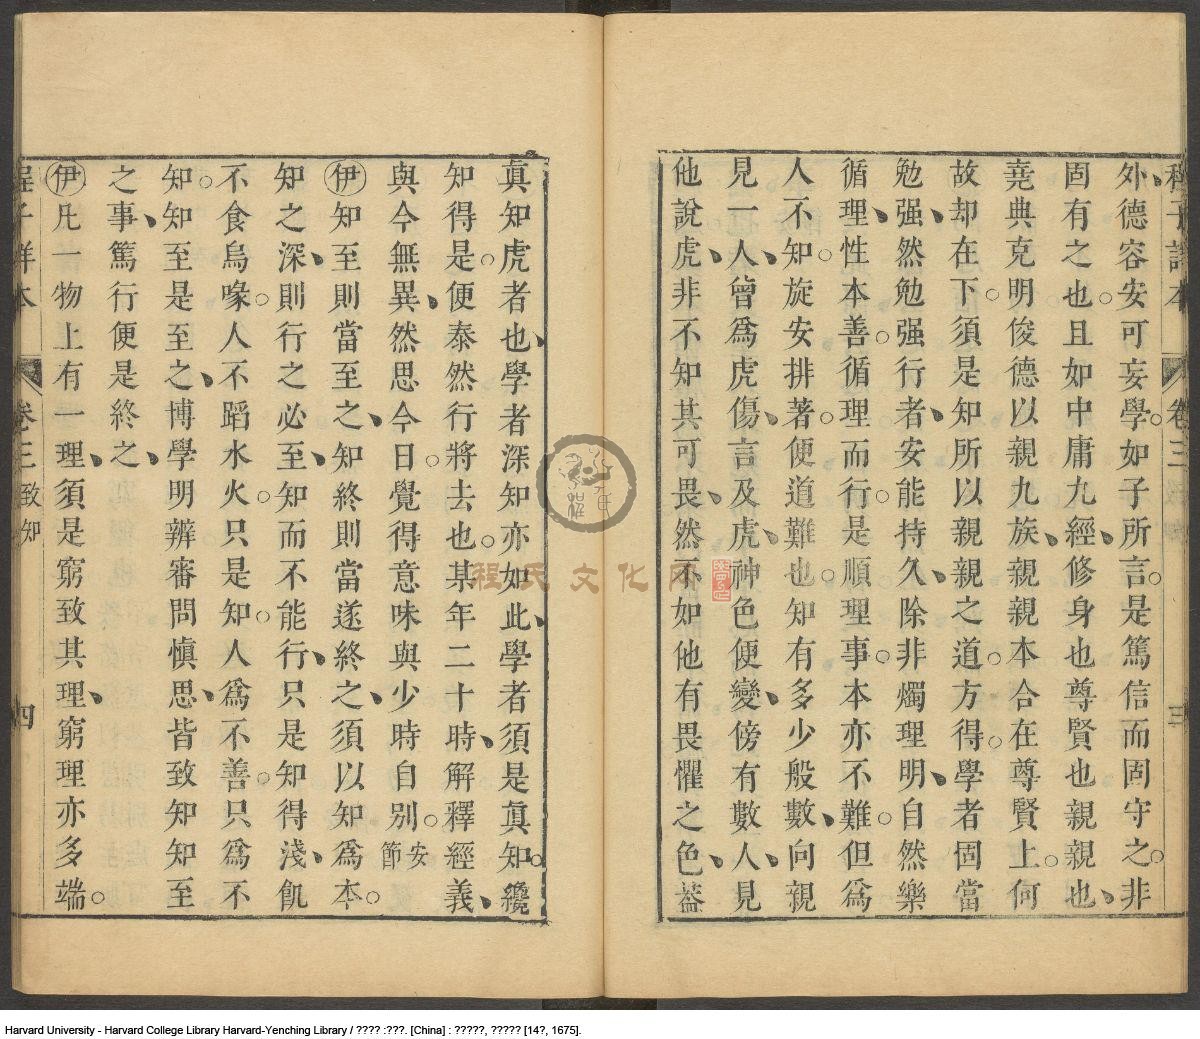 程子詳本 卷三 三
外德容安可妄學如子所言是篤信而固守之非
固有之也且如中庸九經修身也尊賢也親親也
堯典克明俊德以親九族親親本合在尊賢上何
故却在下須是知所以親親之道方得學者固當
勉强然勉强行者安能持久除非燭理明自然樂
循理性本善循理而行是順理事本亦不難但爲
人不知旋安排著便道難也知有多少般數向親
見一人曾爲虎傷言及虎神色便變傍有數人見
他說虎非不知其可畏然不如他有畏懼之色蓋
真知虎者也學者深知亦如此學者須是眞知纔
知得是便泰然行將去也某年二十時解釋經義
與今無異然思今日覺得意味與少時自别安節
伊知至則當至之知終則當遂終之須以知爲本
知之深則行之必至知而不能行只是知得淺飢
不食烏喙人不蹈水火只是知人爲不善只爲不
知知至是至之博學明辨審問慎思皆致知知至
之事篤行便是終之
伊凡一物上有一理須是窮致其理窮理亦多端
程子詳本 卷三 致知 四
程氏文化网
Harvard University - Harvard College Library Harvard-Yenching Library / ???? :???. [China] : ?????, ????? [14?, 1675].